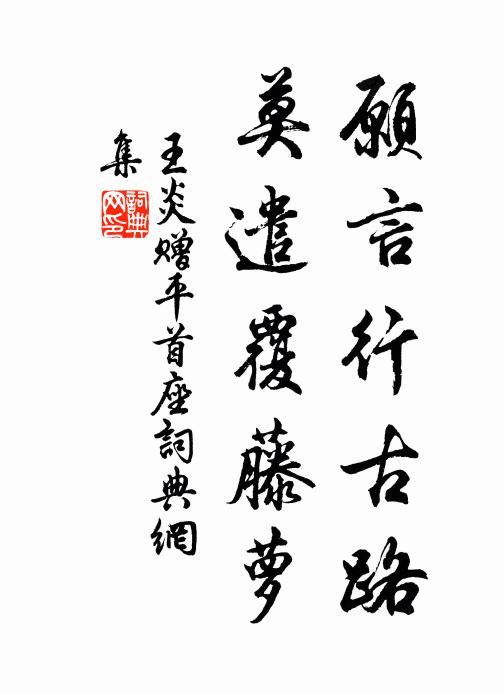 願言行古路
莫遣覆藤萝
王炎赠平首座詞典網
集
詞典
网印